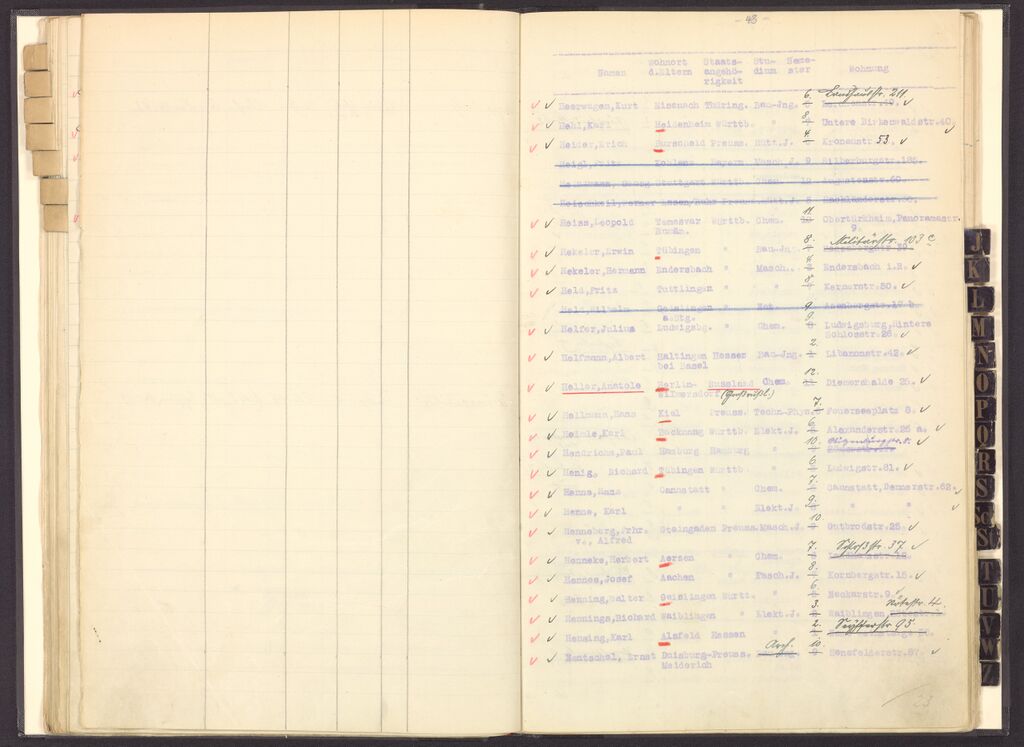 - 48 -
Namen Wohnort d.Eltern Staats-angehö-rigkeit Stu-dium Seme-ster Wohnung
Beerwagen, Kurt Eisenach Thüring. Bau-Jng. 6. Landhausstr. 211
Hehl, Karl Heidenheim Württb. " 8. Untere Birkenwaldstr.40.
Heider, Erich Burscheid Preuss. Hütt.J. 4. Kronenstr 53.
Heigl, Fritz Koblenz Bayern Masch.J. 9 Silberburgstr.185.
Georg Stuttgart Württb. Chem. 12 Augustenstr.60.
Werner Essen/Ruhr Preuss. Hütt.J. 8 Hackländerstr.
Heiss, Leopold Temesvar Württb. Chem. 11. Obertürkheim, Panoramastr.
Rumän. 9.
Hekeler, Erwin Tübingen " Bau-Jng. 8. Militärstr. 103 c
Hekeler, Hermann Endersbach " Masch. 4. Endersbach i.R.
Held, Fritz Tuttlingen " " 8. Kernerstr.50.
Held, Wilhelm Geislingen " 9. Azenbergstr.17 b.
a.Stg. 9.
Helfer, Julius Ludwigsbg. " Chem. 8 Ludwigsburg, Hintere
Schlosstr.26.
Helfmann, Albert Haltingen Hessen Bau-Jng. 2. Libanonstr.42.
bei Basel
Heller, Anatole Berlin- Russland Chem. 12. 11 Diemershalde 25.
Wilmersdorf (Großrußl.)
Hellmann, Hans Kiel Preuss. Techn.Phys. 7. Feuerseeplatz 8.
Heimle, Karl Backnang Württb. Elekt.J. 6. Alexanderstr.25 a.
Hendrichs, Paul Hamburg Hamburg " 10.
Henig, Richard Tübingen Württb. " 6. Ludwigstr.81.
Henne, Hans Cannstatt " Chem. 7. Cannstatt, Dennerstr.62.
Henne, Karl " " Elekt.J. 9. " "
Henneberg, Frhr. Steingaden Preuss. Masch.J. 10. Gutbrodstr.25.
v., Alfred
Henneke, Herbert Aerzen " Chem. 7. Schloßstr. 37
Hennes, Josef Aachen " Masch.J. 8. Kornbergstr.15.
Henning, Walter Geislingen Württ. " 6. Neckarstr.9.
Hennings, Richard Waiblingen " Elekt.J. 3. Waiblingen, 4.
Hensing, Karl Alsfeld Hessen " 2. Seyfferstr 95.
Hentschel, Ernst Duisburg- Preuss. Arch. 10. Hensfelderstr.87.
Meiderich
23
J
K
L
M
N
O
P
Q
R
S
Sch
St
T
U
V
W
Z